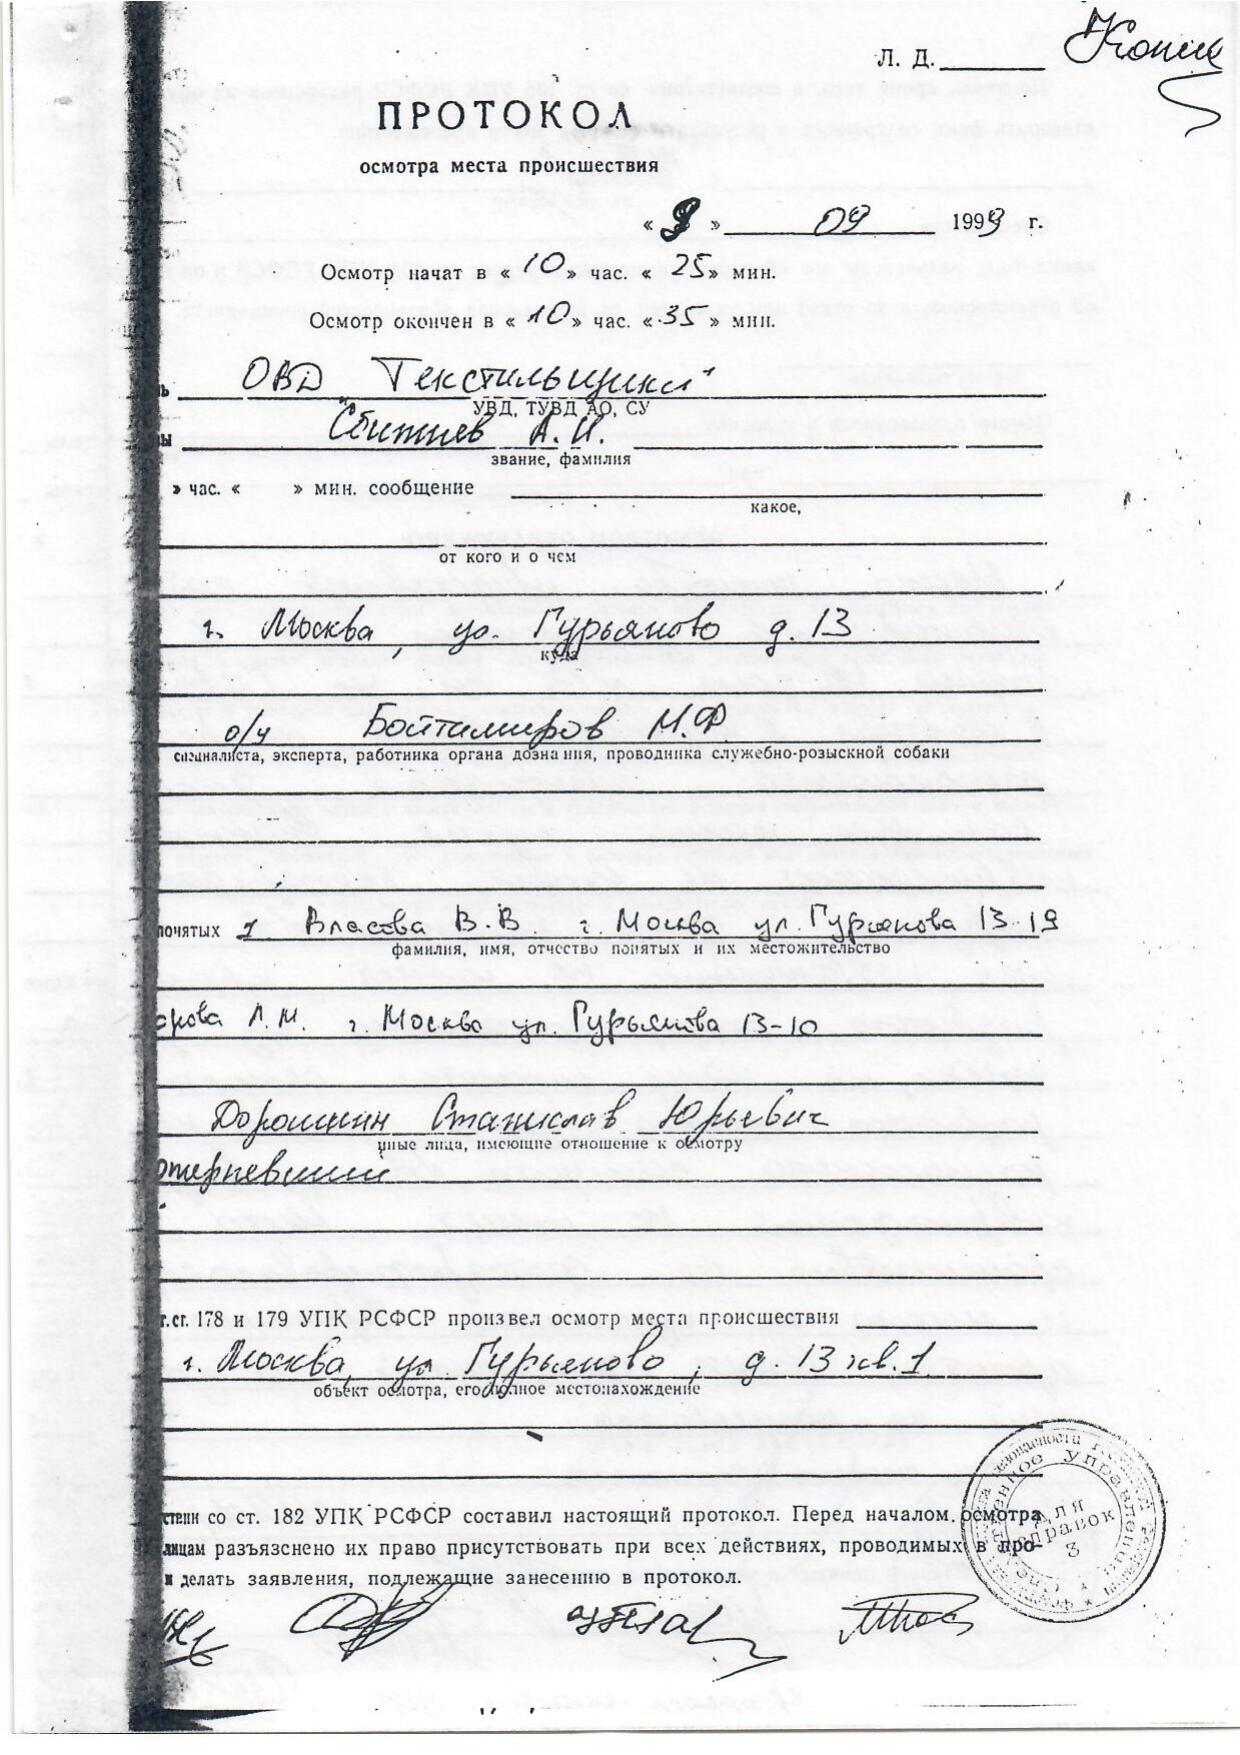 Копия
Л. Д.
ПРОТОКОЛ
осмотра места происшествия
« 9 » 09 1999 г.
Осмотр начат в « 10 » час. « 25 » мин.
Осмотр окончен в « 10 » час. « 35 » мин.
ь ОВД "Текстильщики"
УВД, ТУВД АО, СУ
ы А.И.
звание, фамилия
» час. « » мин. сообщение
какое,
от кого и о чем
г. Москва, ул. Гурьяново д. 13
куда
о/у М.Ф
специалиста, эксперта, работника органа дознания, проводника служебно-розыскной собаки
понятых 1. Власова В.В г. Москва ул. Гурянова 13-19
фамилия, имя, отчество понятых и их местожительство
орова Л.М. г. Москва ул. Гурьянова 13-10
Дорошкин Станислав Юрьевич
иные лица, имеющие отношение к осмотру
отерпевший
т.ст. 178 и 179 УПК РСФСР произвел осмотр места происшествия
г. Москва, ул. Гурьяново, д. 13 кв. 1
объект осмотра, его полное местонахождение
ствии со ст. 182 УПК РСФСР составил настоящий протокол. Перед началом осмотра
лицам разъяснено их право присутствовать при всех действиях, проводимых в про-
и делать заявления, подлежащие занесению в протокол.
Для
справок
3